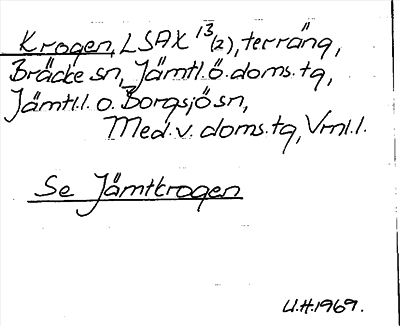 Krogen, LSAX 13/(2), terräng,
Bräcke sn, Jämtl.ö.doms.tg,
Jämtl.l. o. Borgsjö sn,
Med.v.doms.tg, Vrnl.l.
Se Jämtkrogen
U.H.1969.